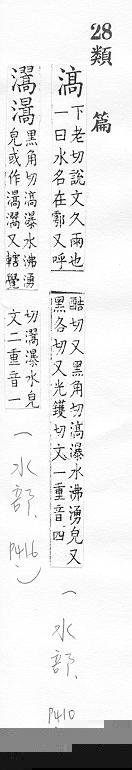 28
類篇
滈下老切說文久雨也
一曰水名在鄠又呼
酷切又黑角切滈瀑水沸湧皃又
黑各切又光鑊切文一重音四
(水部, P410
灂灂黑角切滈瀑水沸湧
皃或作灂灂又轄覺
切灂瀑水皃
文二重音一
(水部, P416.)